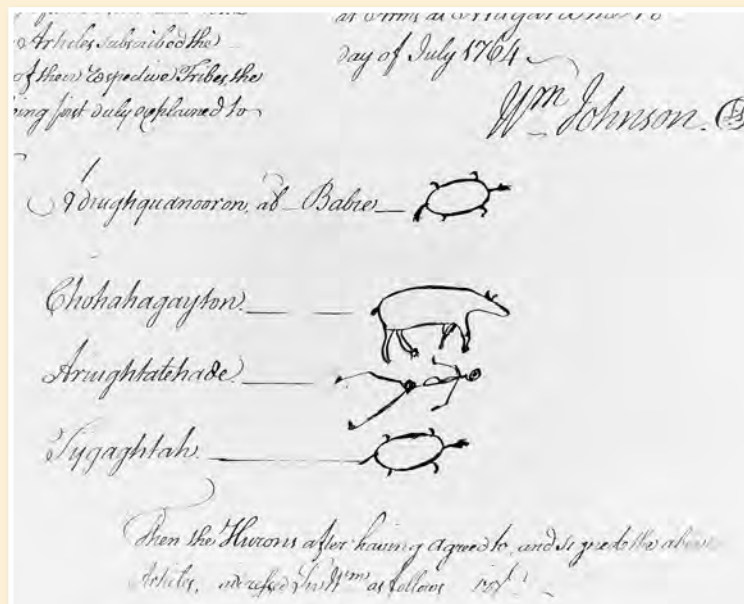 Articles subscribed the
of their Respective Tribes, the
being first duly explained to
day of July 1764
Wm Johnson.
als Babie
Chohahagayton.
Aroughtatehade.
Tygaghtah.
Then the Hurons after having agreed to, and signed the above
Articles, addressed Sir Wm as follows vizt.